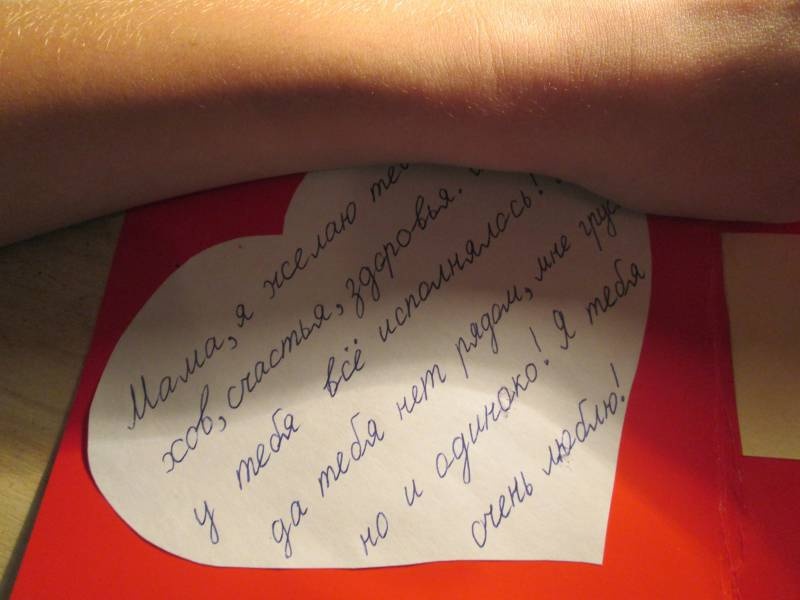 Мама, я желаю
хов, счастья, здоровья.
у тебя всё исполнялось!
да тебя нет рядом, мне
но и одиноко! Я тебя
очень люблю!